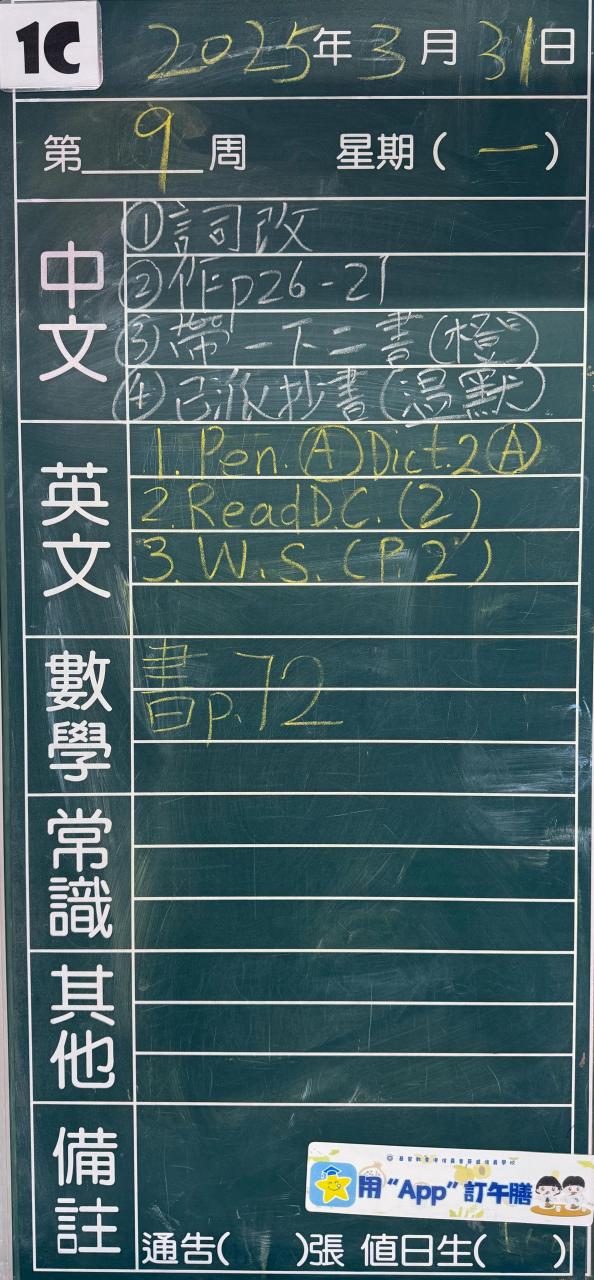 1C
2025年3月31日
第9周 星期(一)
中文
①詞改
②作p26-21
③帶一下二書(橙)
④已派抄書(温默)
英文
1. Pen. Ⓐ Dict. 2 Ⓐ
2. Read D.C. (2)
3. W.S. (P.2)
數學
書p.72
常識
其他
備註
用“App”訂午膳
通告( )張 值日生( )